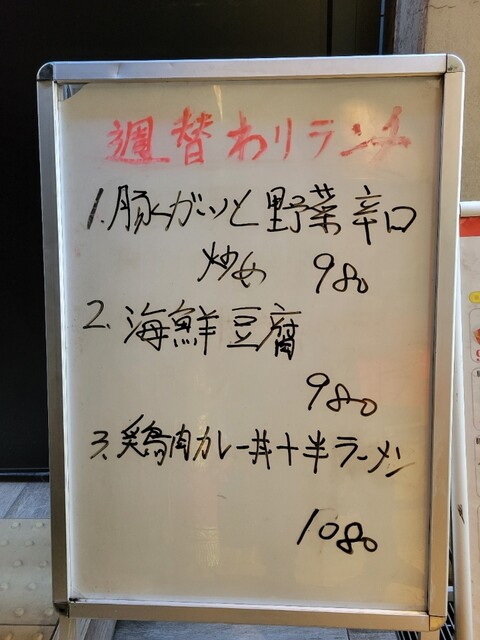 週替わりランチ
1.豚ガツと野菜辛口
炒め 980
2.海鮮豆腐
980
3.鶏肉カレー丼+半ラーメン
1080